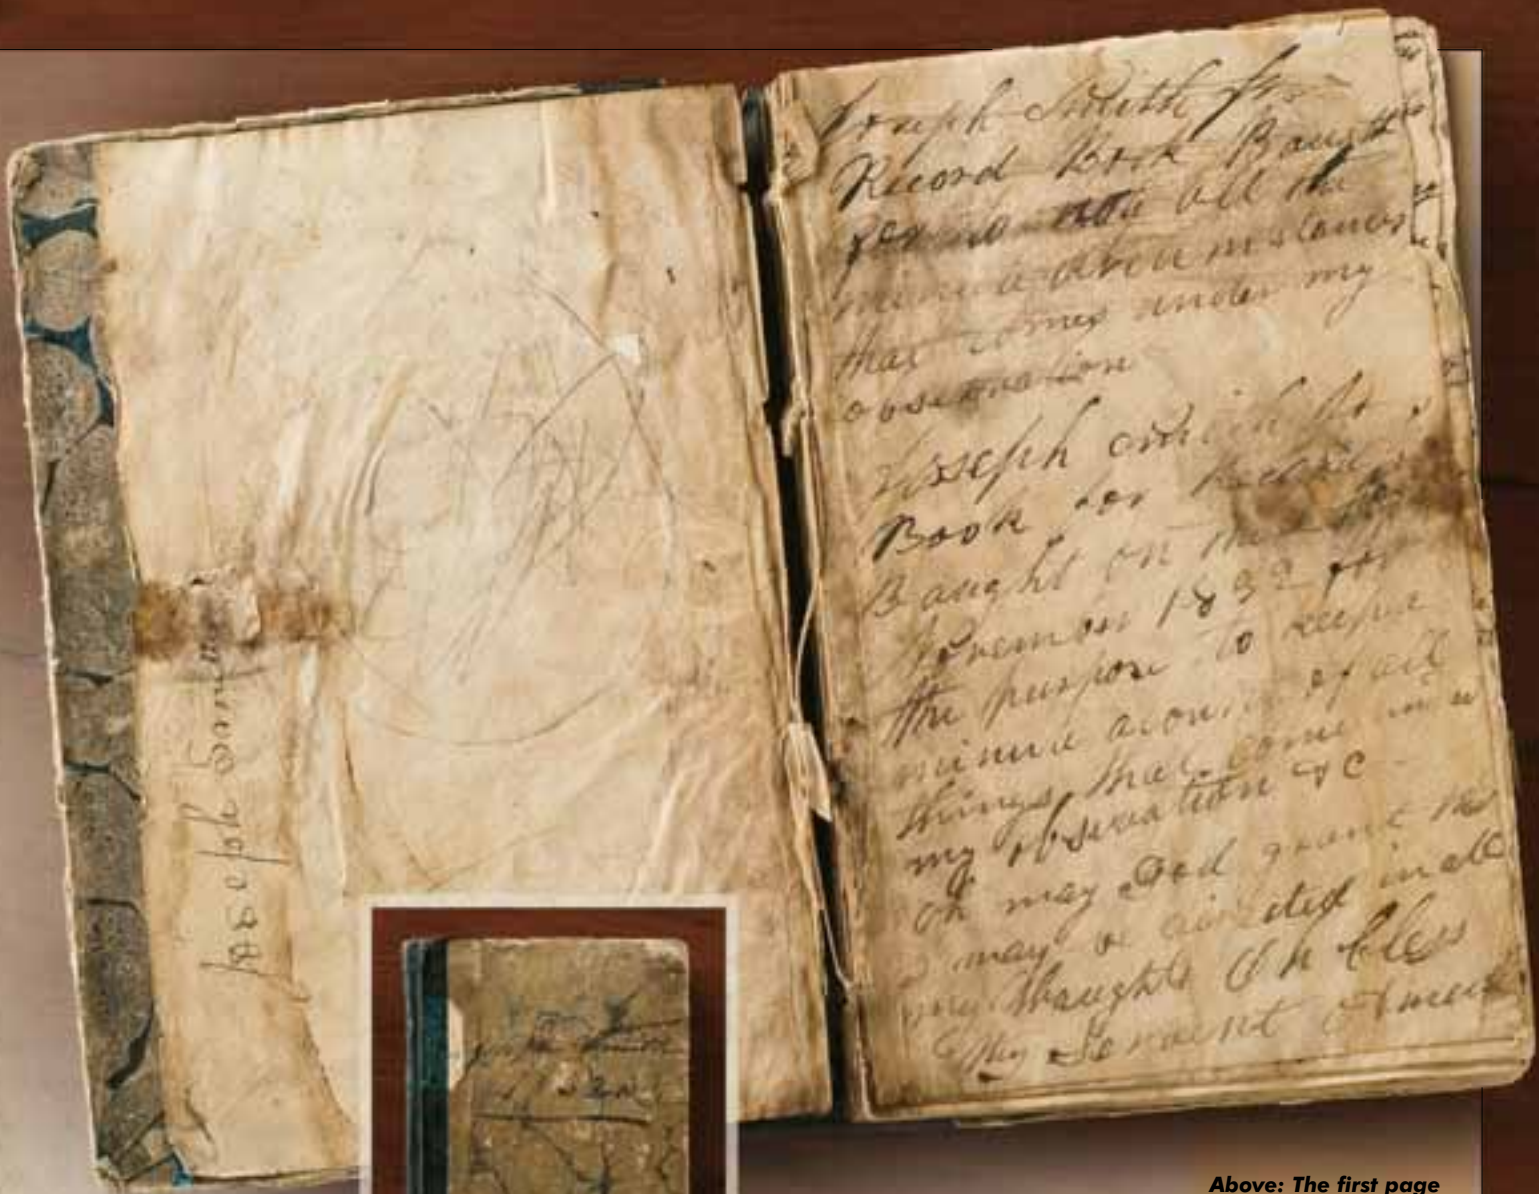 Joseph Smith Jrs
Record Book Baught
for to note all the
minute circumstances
that comes under my
observation
Joseph Smith Jrs
Book for Record
Baught on the
November 1832 for
the purpose to keep a
minute acount of all
things that come under
my obseravation &c
oh may God grant that
I may be directed in all
my thaughts Oh bless
thy Servent Amen
Joseph
Joseph Smith
Above: The first page